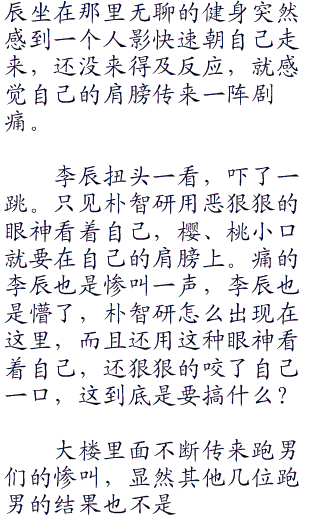 辰坐在那里无聊的健身突然
感到一个人影快速朝自己走
来，还没来得及反应，就感
觉自己的肩膀传来一阵剧
痛。
李辰扭头一看，吓了一
跳。只见朴智研用恶狠狠的
眼神看着自己，樱、桃小口
就要在自己的肩膀上。痛的
李辰也是惨叫一声，李辰也
是懵了，朴智研怎么出现在
这里，而且还用这种眼神看
着自己，还狠狠的咬了自己
一口，这到底是要搞什么？
大楼里面不断传来跑男
们的惨叫，显然其他几位跑
男的结果也不是